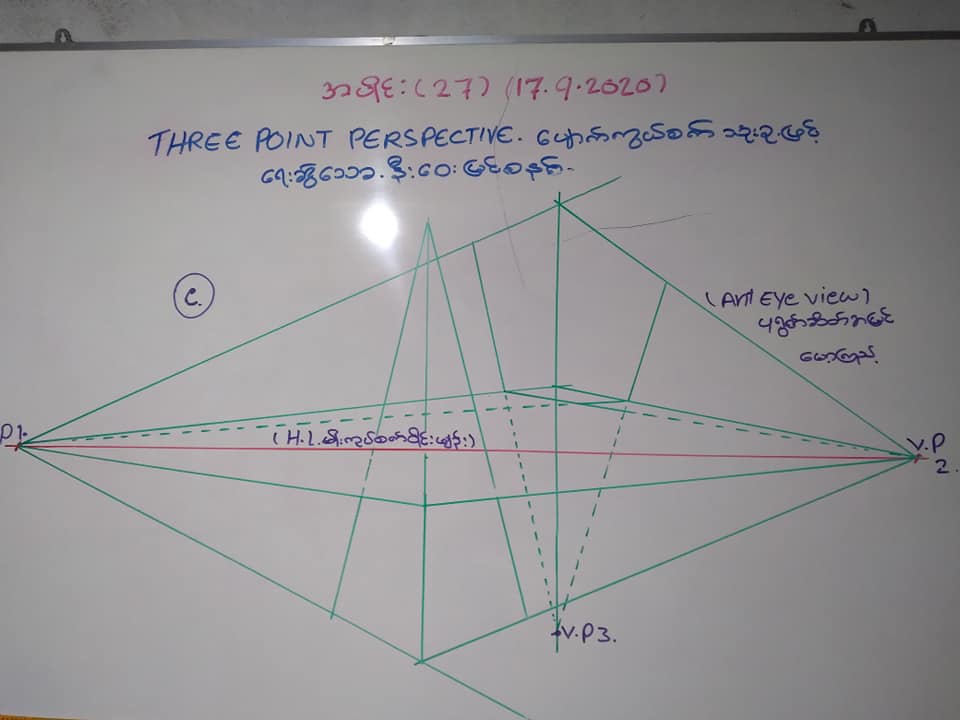 အပိုင်း (27) (17.9.2020)
THREE POINT PERSPECTIVE. ပျောက်ကွယ်စက် သုံးခုဖြင့်
ရေးဆွဲသော. နီးဝေးမြင်စနစ်.
C.
(Ant Eye view)
ပုရွက်ဆိတ်အမြင်
မော့ကြည့်
P1.
(H.L.မိုးကုပ်စက်ဝိုင်းမျဉ်း)
V.P
2.
V.P3.